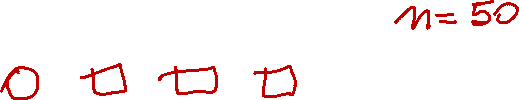 n = 50